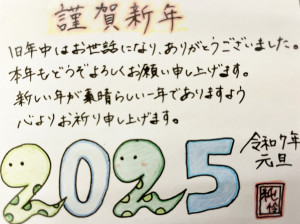 謹賀新年
旧年中はお世話になり、ありがとうございました。
本年もどうぞよろしくお願い申し上げます。
新しい年が素晴らしい一年でありますよう
心よりお祈り申し上げます。
令和7年
元旦
2025